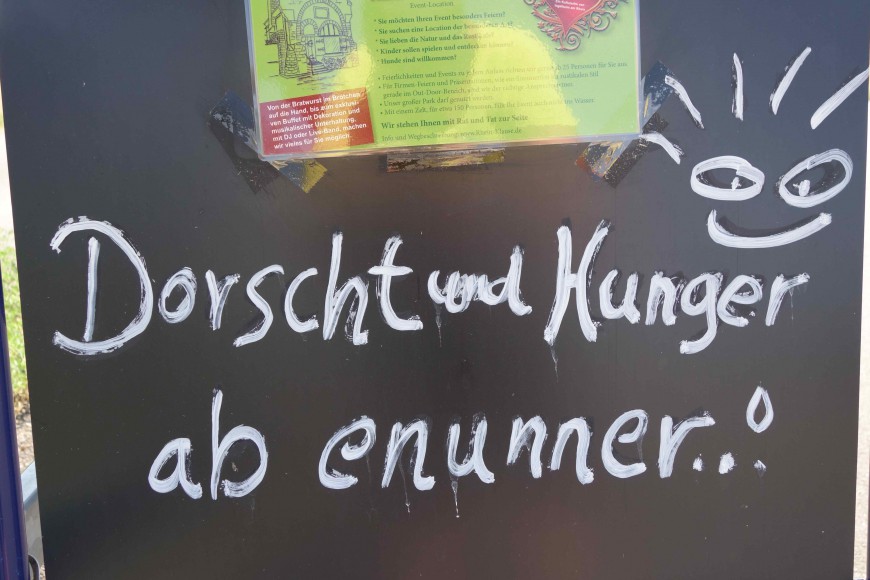 Event-Location
* Sie möchten Ihren Event besonders Feiern?
* Sie suchen eine Location der besonderen
* Sie lieben die Natur und das
* Kinder sollen spielen und entdecken können?
* Hunde sind willkommen!
Von der Bratwurst im Brötchen
auf die Hand, bis zum exklusi-
ven Buffet mit Dekoration und
musikalischer Unterhaltung,
mit DJ oder Live-Band, machen
wir vieles für Sie möglich.
• Feierlichkeiten und Events zu
• Für Firmen-Feiern und
gerade im Out-Door-Bereich, sind wir der richtige
• Unser großer Park darf genutzt werden
• Mit einem Zelt, für etwa 150 Personen,
Wir stehen Ihnen mit Rat und Tat zur Seite
Dorscht und Hunger
ab enunner..!